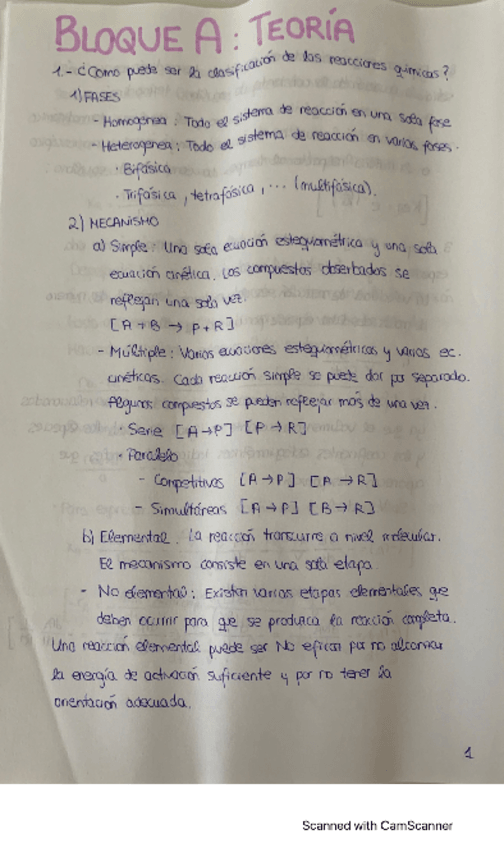 BLOQUE A: TEORÍA
1.- ¿Como puede ser la clasificación de las reacciones químicas?
1) FASES
- Homogénea: Todo el sistema de reacción en una sola fase
- Heterogénea: Todo el sistema de reacción en varias fases.
· Bifásica
· Trifásica, tetrafásica, ... (multifásica).
2) MECANISMO
a) Simple: Una sola ecuación estequiométrica y una sola
ecuación cinética. Los compuestos observados se
reflejan una sola vez.
[A + B → P + R]
- Múltiple: Varias ecuaciones estequiométricas y varias ec.
cinéticas. Cada reacción simple se puede dar por separado.
Algunos compuestos se pueden reflejar más de una vez.
· Serie [A → P] [P → R]
· Paralelo
- Competitivas [A → P] [A → R]
- Simultáneas [A → P] [B → R]
b) Elemental: La reacción transcurre a nivel molecular.
El mecanismo consiste en una sola etapa.
- No elemental: Existen varias etapas elementales que
deben ocurrir para que se produzca la reacción completa.
Una reacción elemental puede ser No eficaz por no alcanzar
la energía de activación suficiente y por no tener la
orientación adecuada.
1
Scanned with CamScanner